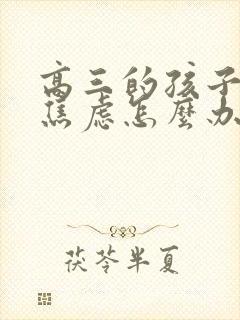 高三的孩子
焦虑怎麼办
茯苓半夏